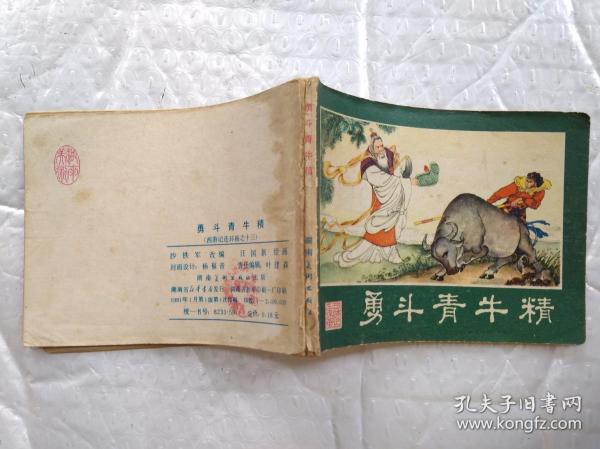 勇斗青牛精
勇斗青牛精
湖南美术出版社
勇斗青牛精
(西游记连环画之十三)
沙铁军 改编 汪国新 绘画
封面设计：杨福音 责任编辑：叶建森
湖南美术出版社出版
湖南省新华书店发行
统一书号：8233·
定价：0.16元
孔夫子旧书网
www.kongfz.com